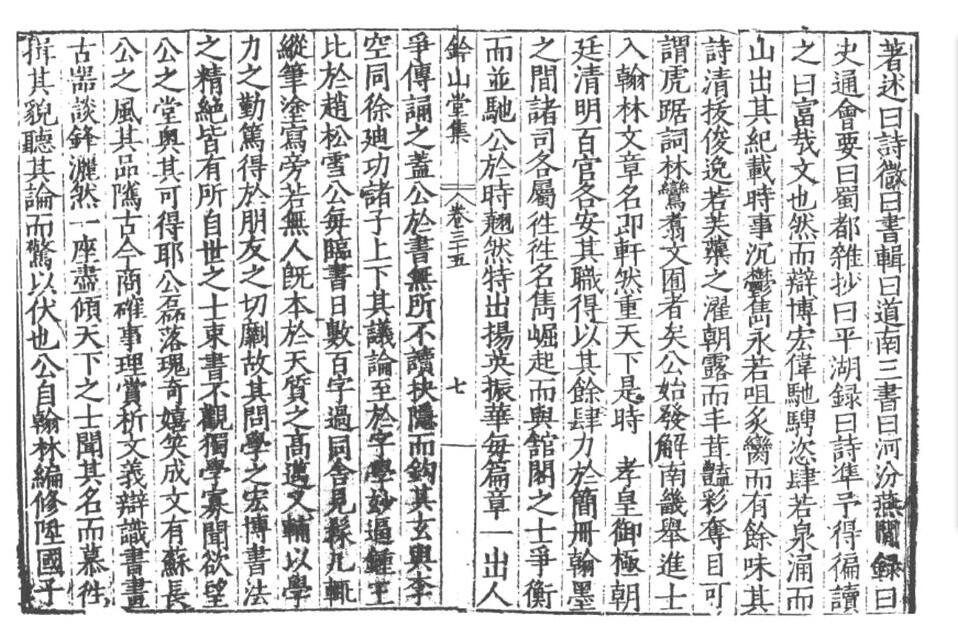 著述曰詩微曰書輯曰道南三書曰河汾燕閒録曰
史通會要曰蜀都雜抄曰平湖録曰詩準予得徧讀
之曰富哉文也然而辯博宏偉馳騁恣肆若泉涌而
山出其紀載時事沉鬱雋永若咀炙臠而有餘味其
詩清拔俊逸若芙蕖之濯朝露而丰茸豔彩奪目可
謂虎踞詞林鸞翥文囿者矣公始發解南畿舉進士
入翰林文章名即軒然重天下是時　孝皇御極朝
廷清明百官各安其職得以其餘肆力於簡冊翰墨
之間諸司各屬徃徃名雋崛起而與舘閣之士爭衡
而並馳公於時翹然特出揚英振華每篇章一出人
鈐山堂集　卷三十五　七
爭傳誦之蓋公於書無所不讀抉隱而鈎其玄與李
空同徐廸功諸子上下其議論至於字學妙逼鍾王
比於趙松雪公每臨書日數百字過同舎見縑九輒
縱筆塗寫旁若無人既本於天質之高邁又輔以學
力之勤篤得於朋友之切劘故其問學之宏博書法
之精絶皆有所自世之士束書不觀獨學寡聞欲望
公之堂奥其可得耶公磊落瑰奇嬉笑成文有蘇長
公之風其品隲古今商確事理賞析文義辯識書畫
古器談鋒灑然一座盡傾天下之士聞其名而慕徃
揖其貌聽其論而驚以伏也公自翰林編修陞國子